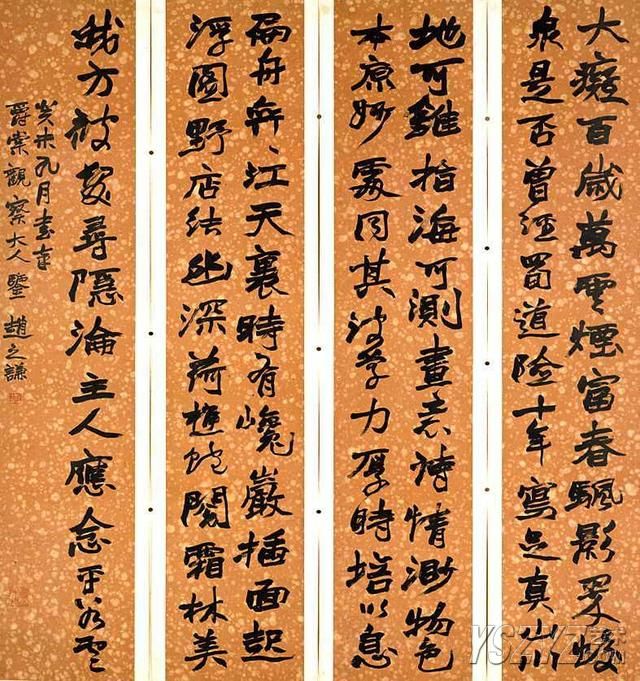 大癡百歲萬雲煙富春影峻
泉是否曾經蜀道險十年寫真山川
地可錐指海可測畫意詩情渺物色
本原妙處同其詩學力厚時培以息
扁舟奔〻江天裏時有巉巖插面起
浮圖野店結幽深荷樵蛇閣霜林美
我方被髮尋隱淪主人應念平
癸未九月書奉
爵棠觀察大人鑒 趙之謙